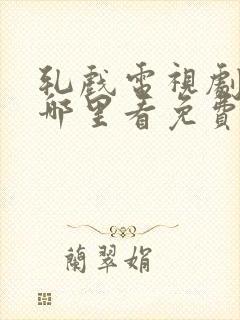 軋戲電視劇
哪里看免費
蘭翠娟